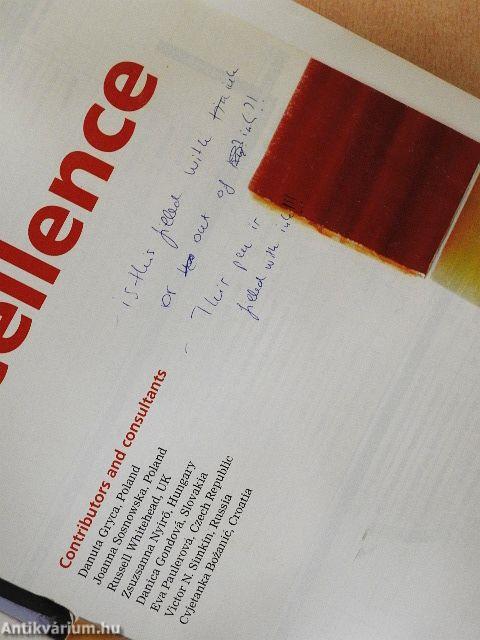 ellence
- is this filled with ink
or out of ink?!
- This pen is
filled with ink!!!
Contributors and consultants
Danuta Gryca, Poland
Joanna Sosnowska, Poland
Russell Whitehead, UK
Zsuzsanna Nyirő, Hungary
Danica Gondová, Slovakia
Eva Paulerová, Czech Republic
Victor N. Simkin, Russia
Cvjetanka Božanić, Croatia
Antikvárium.hu